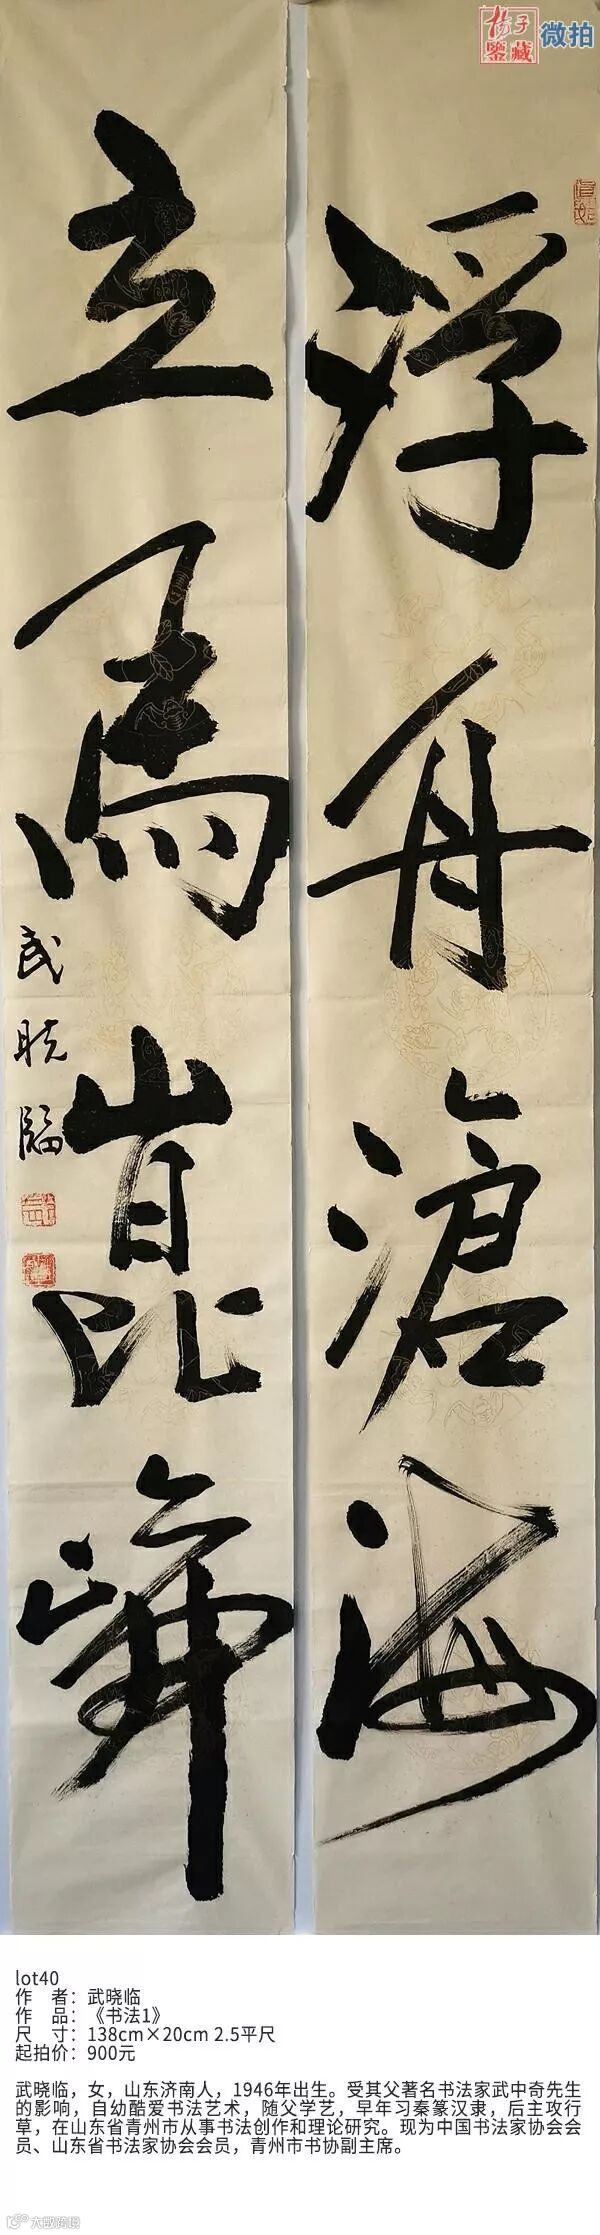 扬子
鉴藏
微拍
浮舟滄海
立馬崑崙
武晓临
lot40
作 者：武晓临
作 品：《书法1》
尺 寸：138cm×20cm 2.5平尺
起拍价：900元
武晓临，女，山东济南人，1946年出生。受其父著名书法家武中奇先生
的影响，自幼酷爱书法艺术，随父学艺，早年习秦篆汉隶，后主攻行
草，在山东省青州市从事书法创作和理论研究。现为中国书法家协会会
员、山东省书法家协会会员，青州市书协副主席。
大数跨境